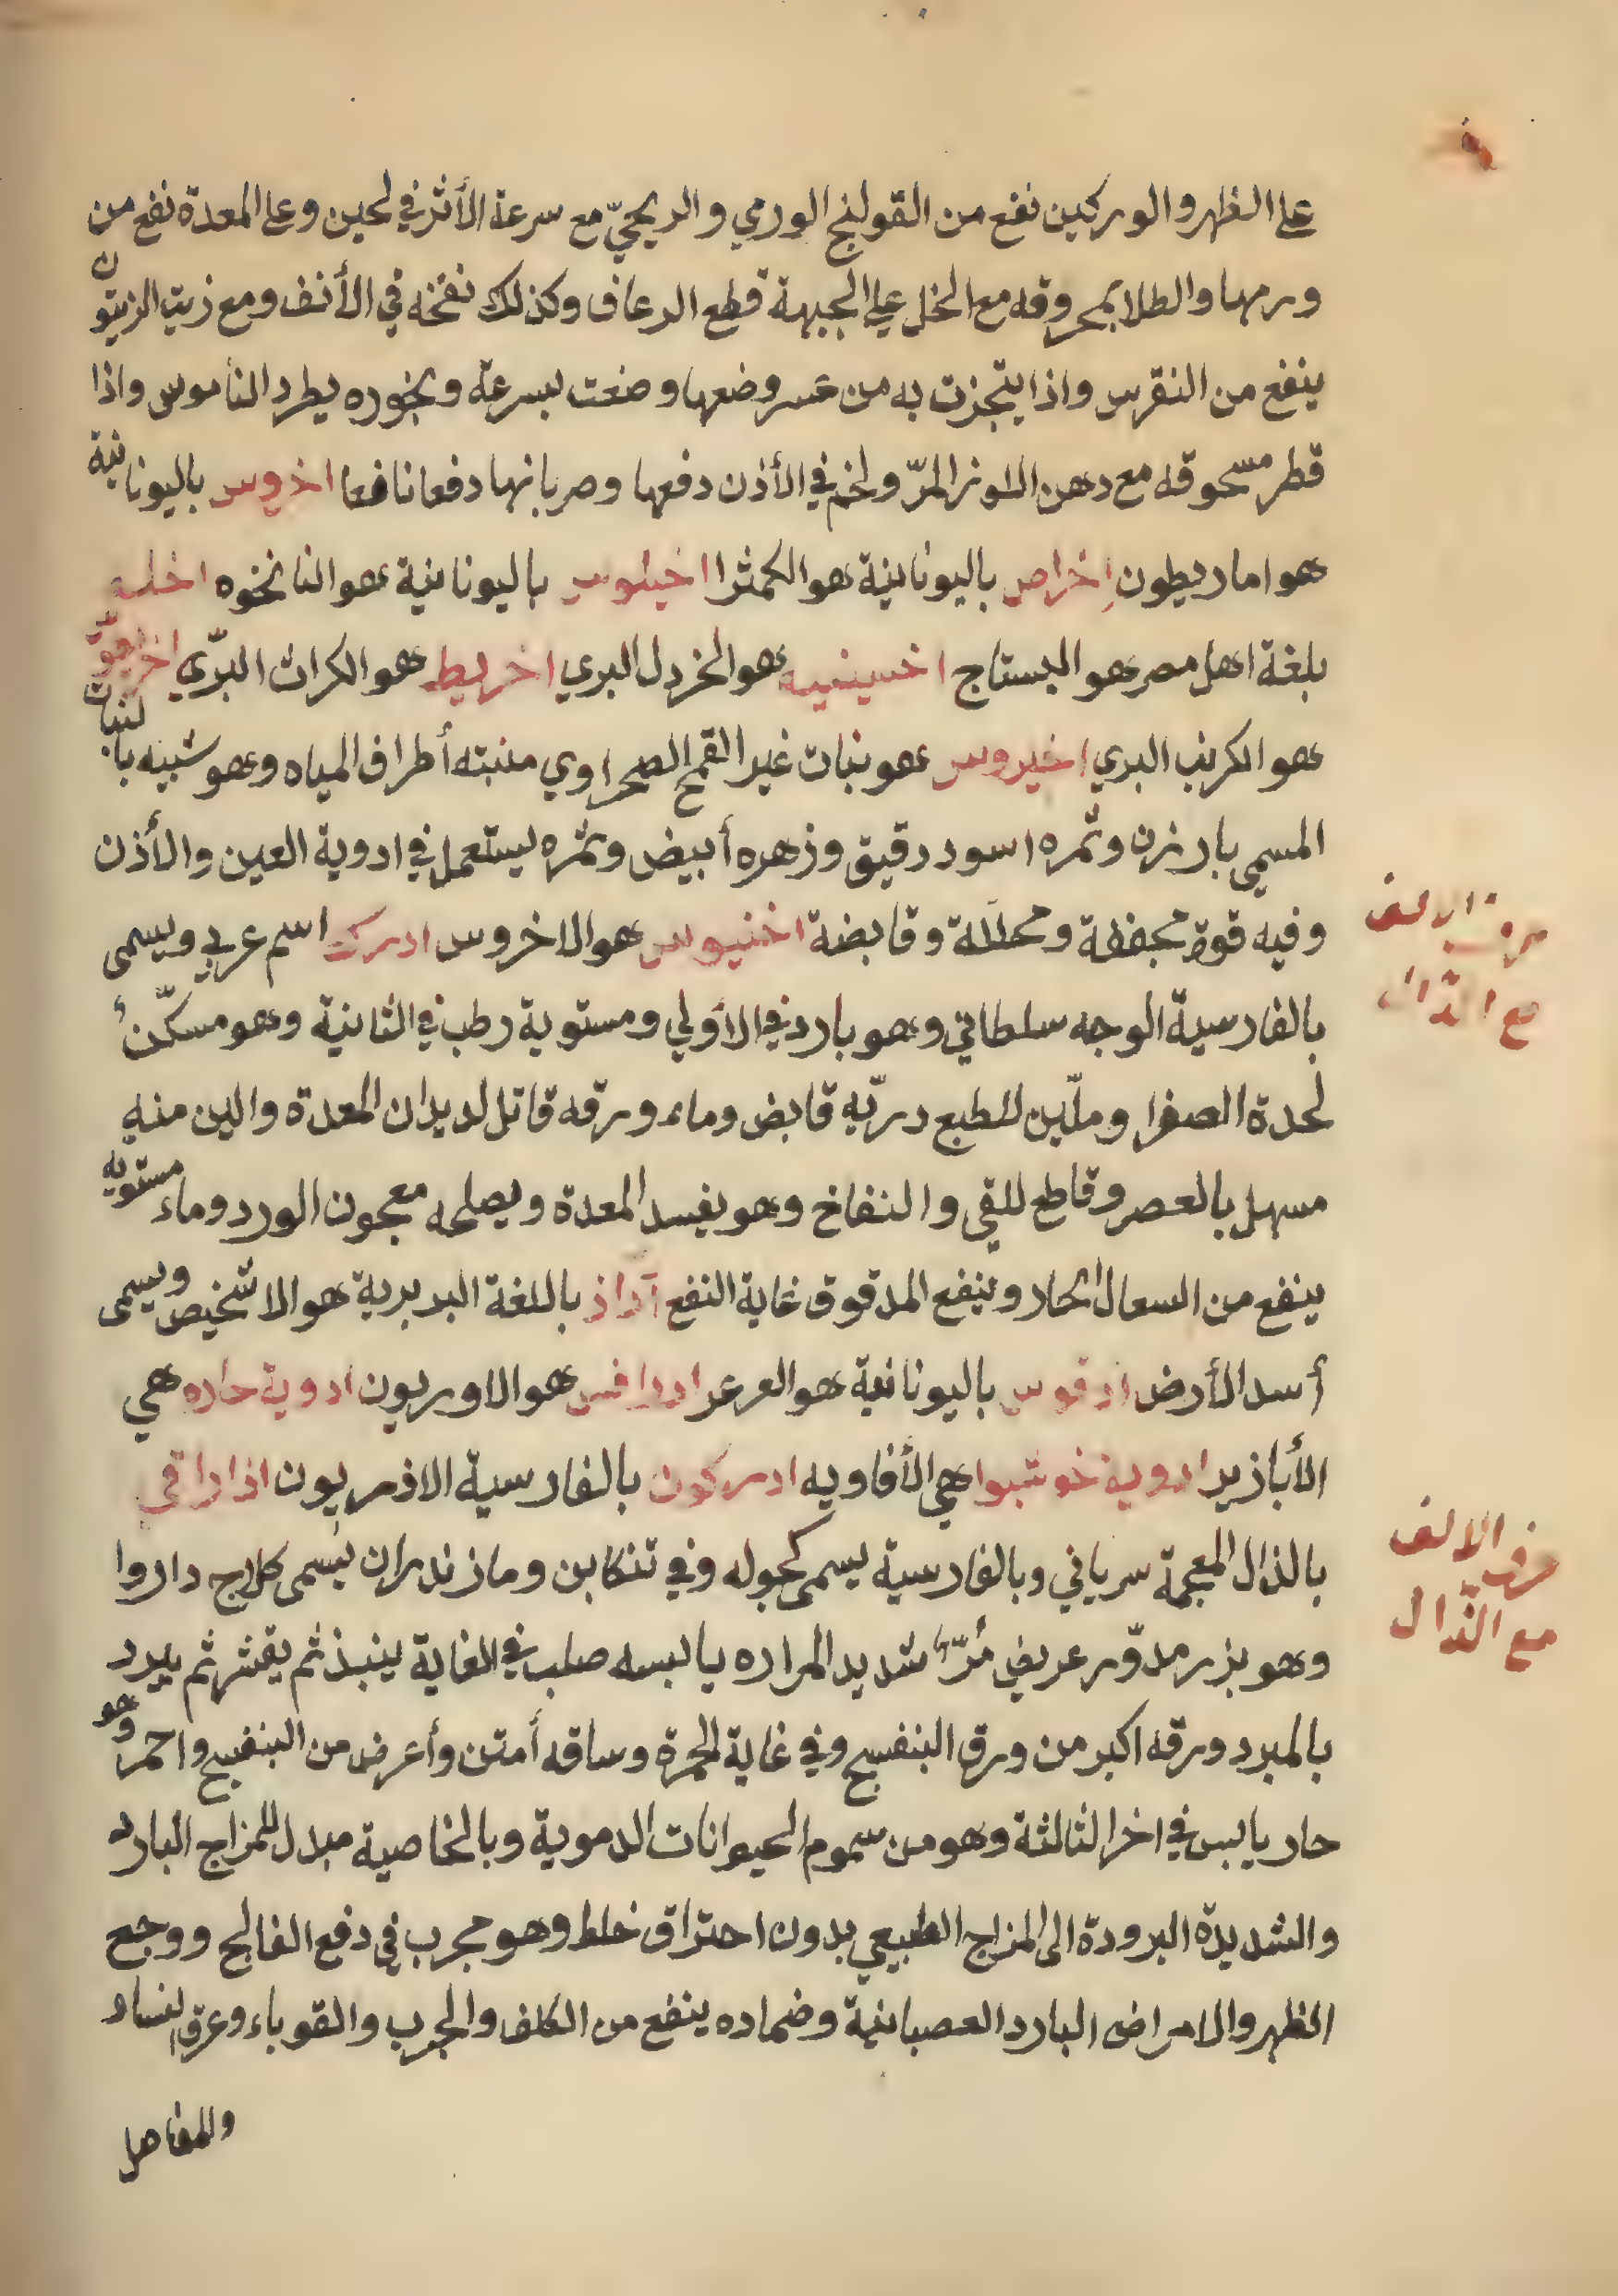 على الظهر والوركين نفع من القولنج الورمي والريحيّ مع سرعة الأثر في لحين وعلى المعدة نفع من
ورمها والطلا بمحروقه مع الخل على الجبهة قطع الرعاف وكذلك نفخه في الأنف ومع زيت الزيتون
ينفع من النقرس واذا يتجزت به من عسر وضعها وضعت بسرعة وبخوره يطرد الناموس واذا
قطر مسحوقه مع دهن اللوز المرّ ولخم في الأذن دفعها وصربانها دفعا نافعا اخروس باليونانية
هو اماريطون إخراص باليونانية هو الكمثرا اخيلوس باليونانية هو النانخوه اخله
بلغة اهل مصر هو البستاج اخسينيه هو الخردل البري اخريط هو الكراث البرّي
هو الكرنب البري اخيروس هو نبات غير القمح الصحراوي منبته أطراف المياه وهو شبيه بالنبات
المسمى بارزن وثمره اسود رقيق وزهره أبيض وثمره يستعمل في ادوية العين والأذن
وفيه قوة مجففة ومحللة وقابضة اخنيوس هو الاخروس ادرك اسم عربي ويسمى
بالفارسية الوجه سلطاني وهو بارد في الأولى ومستوية رطب في الثانية وهو مسكّن
لحدة الصفرا وملّين للطبع دربّه قابض وماء ورقه قاتل لديدان المعدة والين منه
مسهل بالعصر وقاطع للقي والنفاخ وهو يفسد المعدة ويصلحه معجون الورد وماء مستويه
ينفع من السعال الحار وينفع المدقوق غاية النفع آداذ باللغة البربرية هو الاشخيص ويسمى
أسد الأرض ادقوس باليونانية هو العرعر ادرافس هو الاوربيون ادوية حاده هي
الأبازير ادوية خوشبوا هي الأفاويه ادركون بالفارسية الاذريون اذاراقى
بالذال المعجمة سرياني وبالفارسية يسمى كچوله وفي تنكابن ومازندران يسمى كلاج داروا
وهو بزر مدوّر عريض مُرّ شديد المراره يا لبسه صلب في الغاية ينبذ ثم يقشر ثم يبرد
بالمبرد ورقه اكبر من ورق البنفسج وفي غاية الحمرة وساقه أمتن وأعرض من البنفسج واحمر وهو
حار يابس في اخر الثالثة وهو من سموم الحيوانات الدموية وبالخاصية مبدل للمزاج البارد
والشديدة البرودة الى المزاج الطبيعي بدون احتراق خلط وهو مجرب في دفع الفالج ووجع
الظهر والامراض البارد العصبانية وضماده ينفع من الكلف والجرب والقوباء وعرق النساد
والمفاصل
حرف الالف
مع الدّال
حرف الالف
مع الذّال